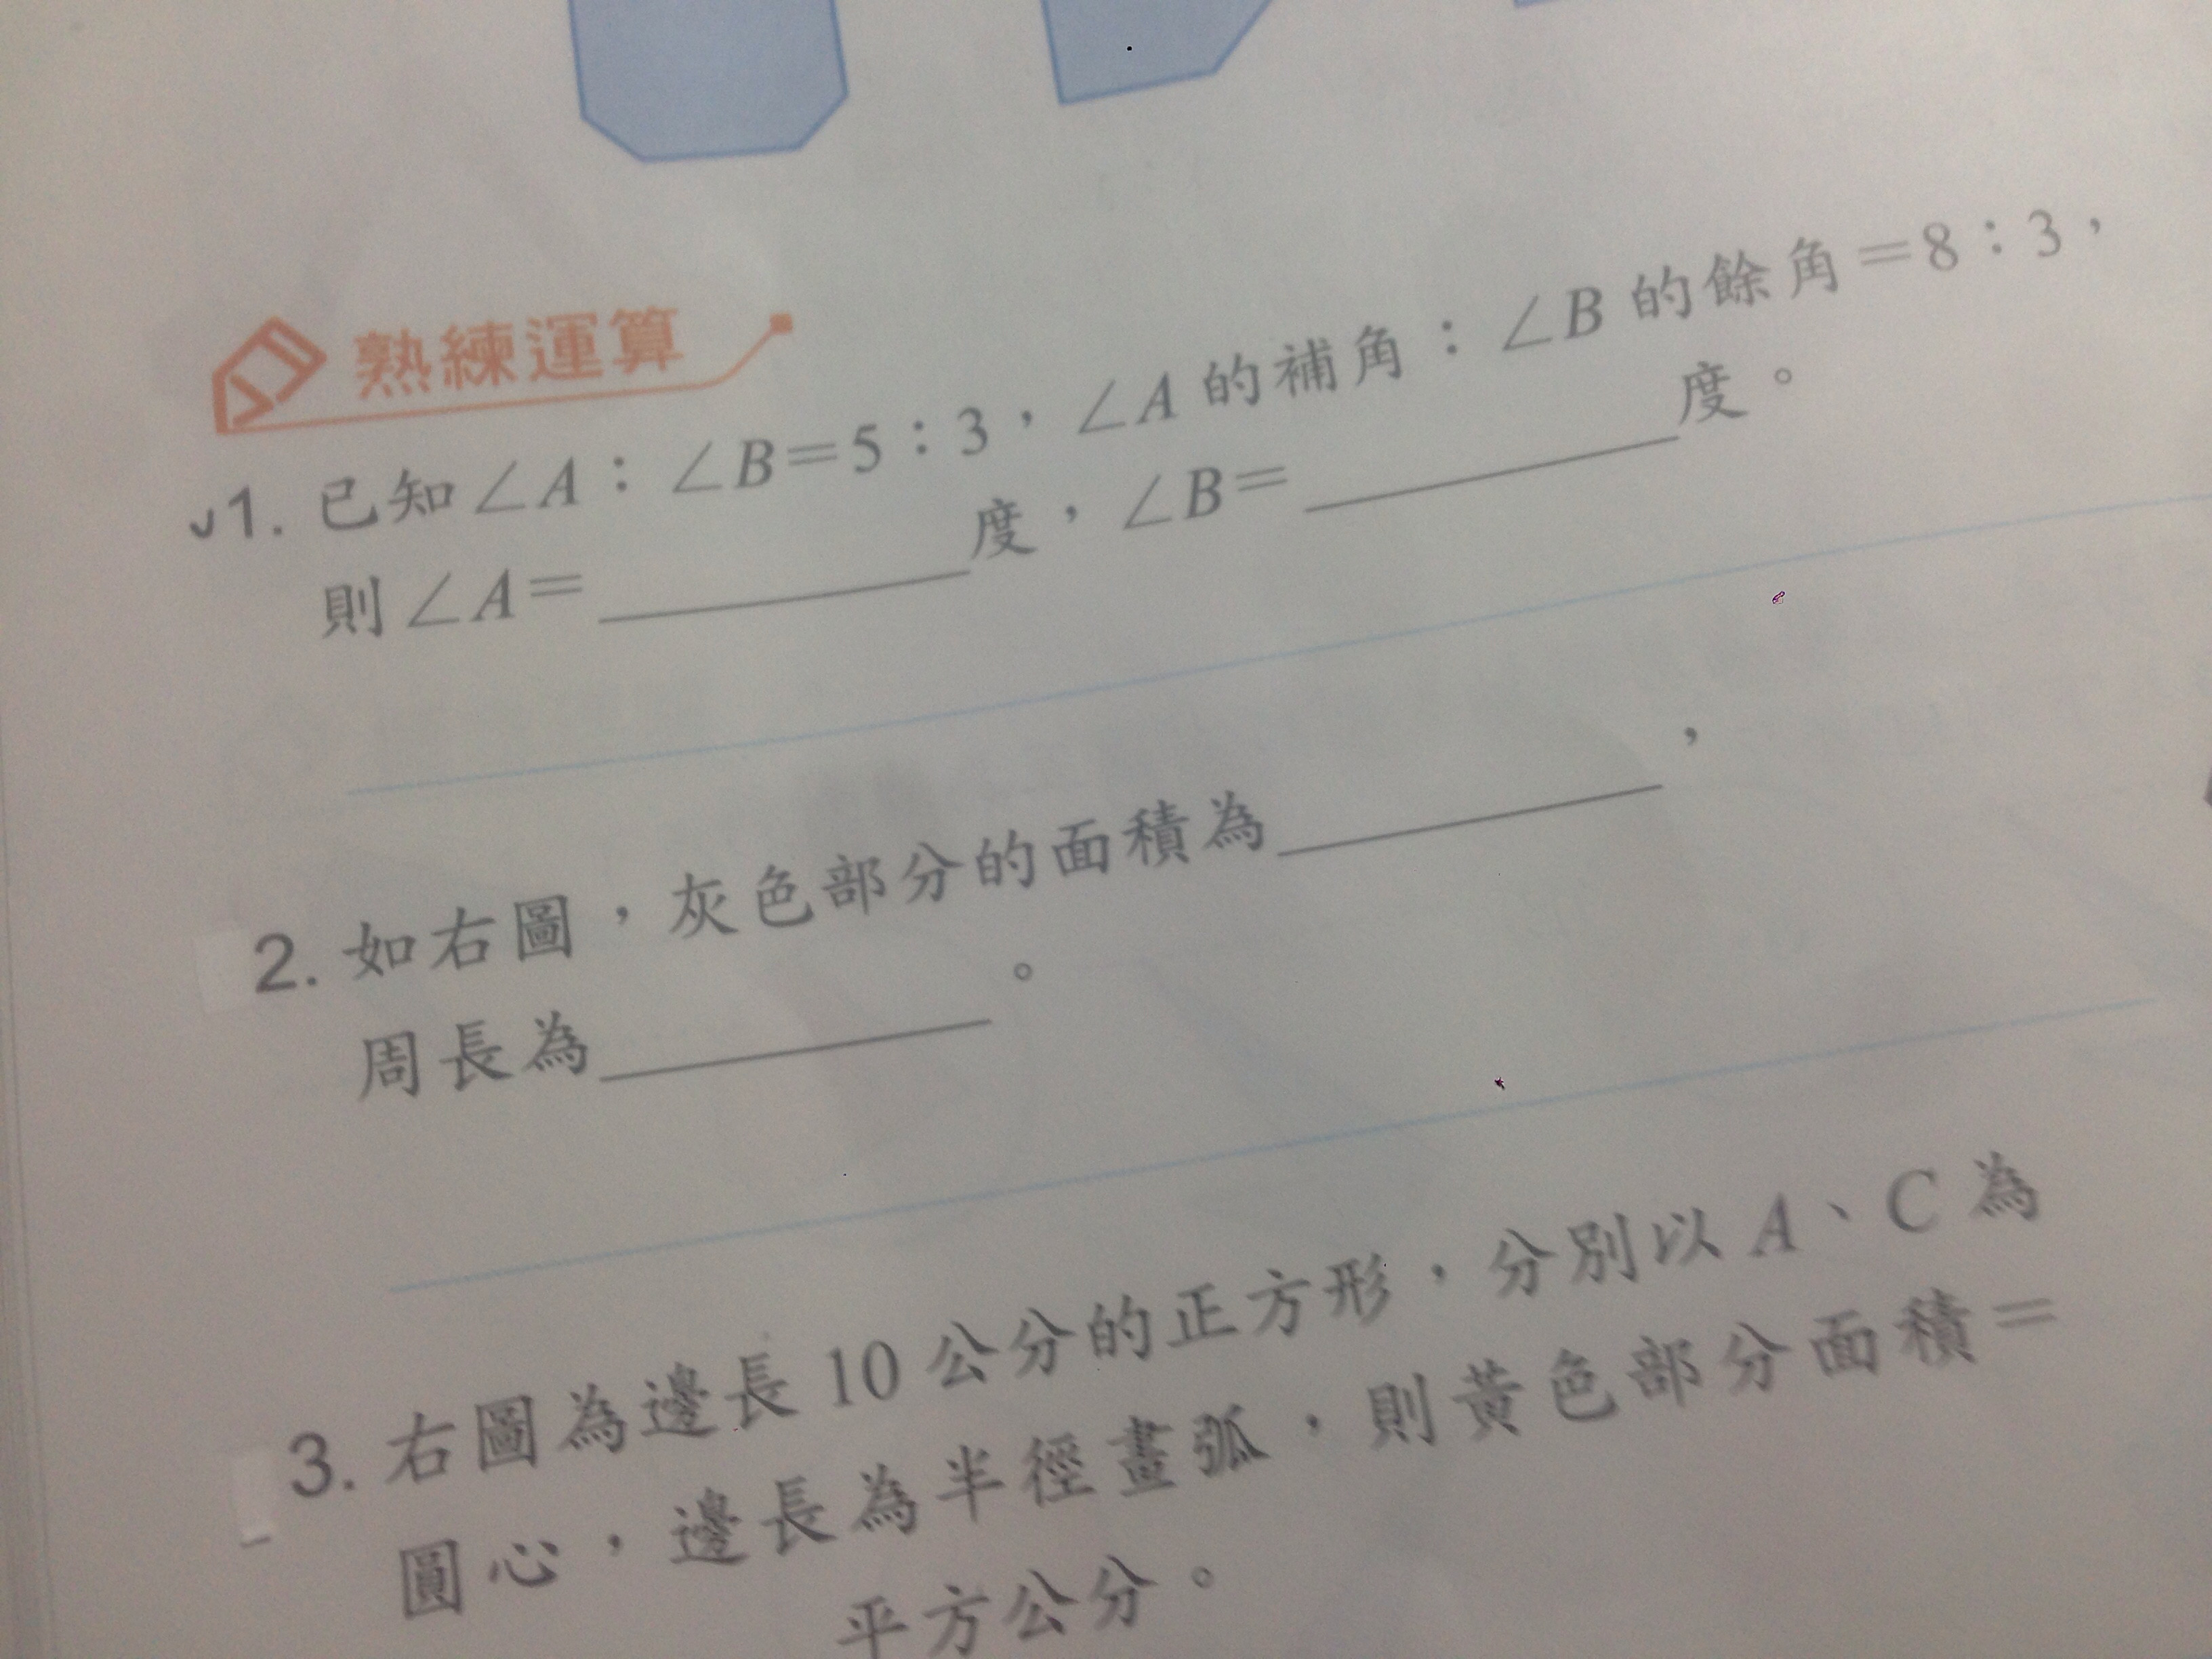 熟練運算
1. 已知∠A：∠B＝5：3，∠A 的補角：∠B 的餘角＝8：3，
則∠A＝__________度，∠B＝__________度。
2. 如右圖，灰色部分的面積為__________，
周長為__________。
3. 右圖為邊長 10 公分的正方形，分別以 A、C 為
圓心，邊長為半徑畫弧，則黃色部分面積＝
平方公分。